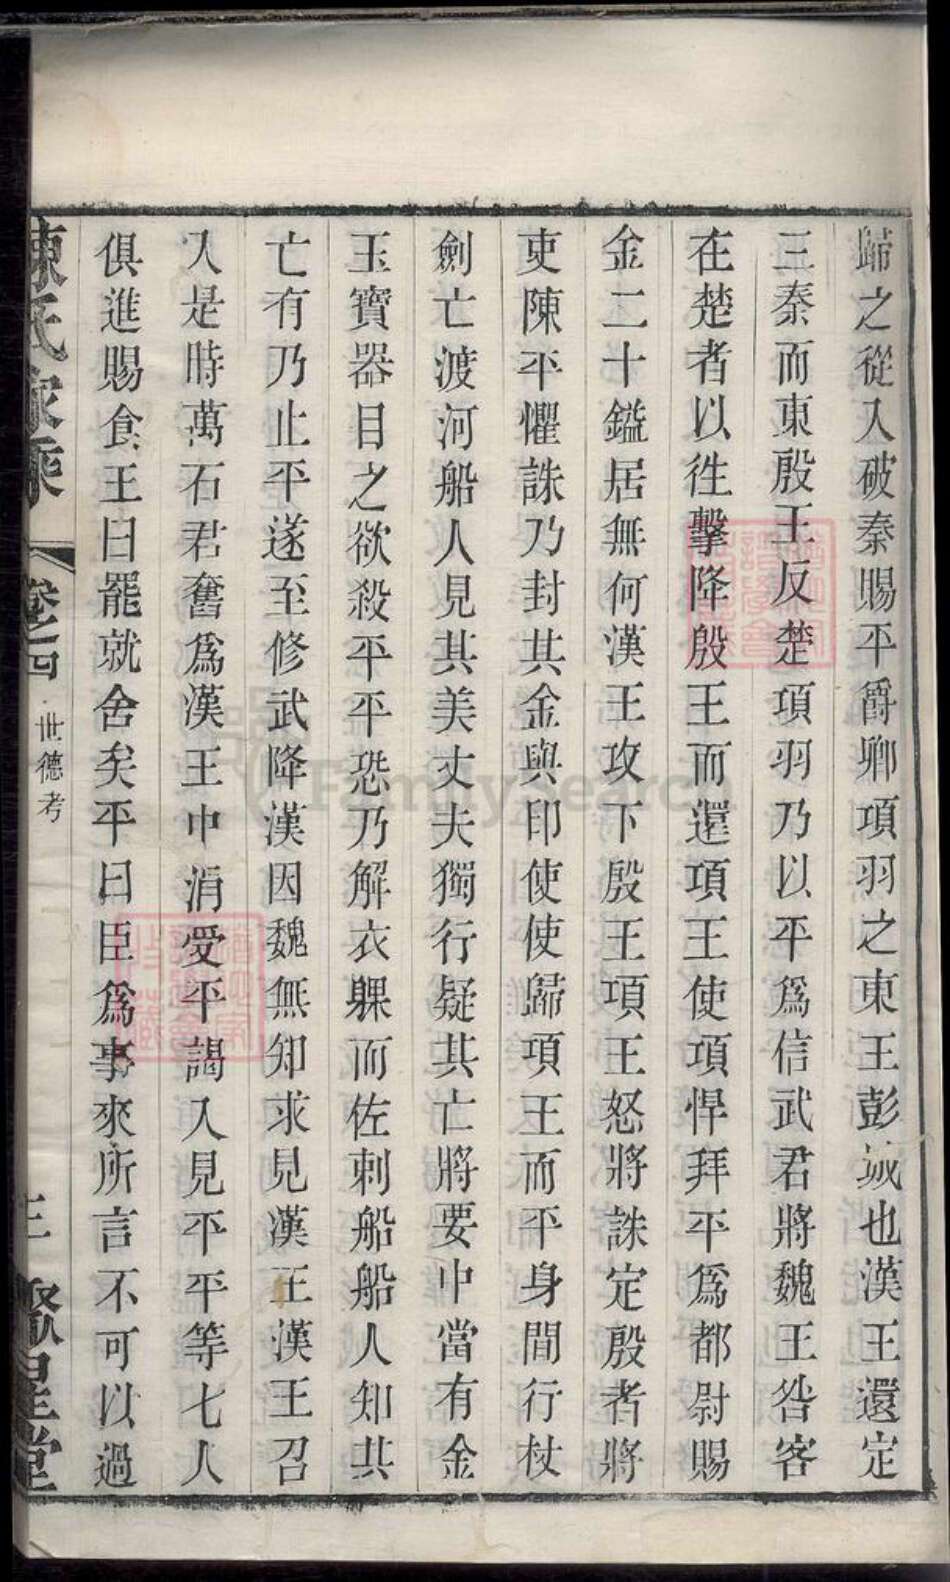 歸之從入破秦賜平爵卿項羽之東王彭城也漢王還定
三秦而東殷王反楚項羽乃以平爲信武君將魏王咎客
在楚者以徃擊降殷王而還項王使項悍拜平爲都尉賜
金二十鎰居無何漢王攻下殷王項王怒將誅定殷者將
吏陳平懼誅乃封其金與印使使歸項王而平身間行杖
劍亡渡河船人見其美丈夫獨行疑其亡將要中當有金
玉寶器目之欲殺平平恐乃解衣躶而佐刺船船人知其
亡有乃止平遂至修武降漢因魏無知求見漢王漢王召
入是時萬石君奮爲漢王中涓受平謁入見平平等七人
俱進賜食王曰罷就舍矣平曰臣爲事來所言不可以過
陳氏家乘
卷之四
世德考
三
聚星堂
FamilySearch